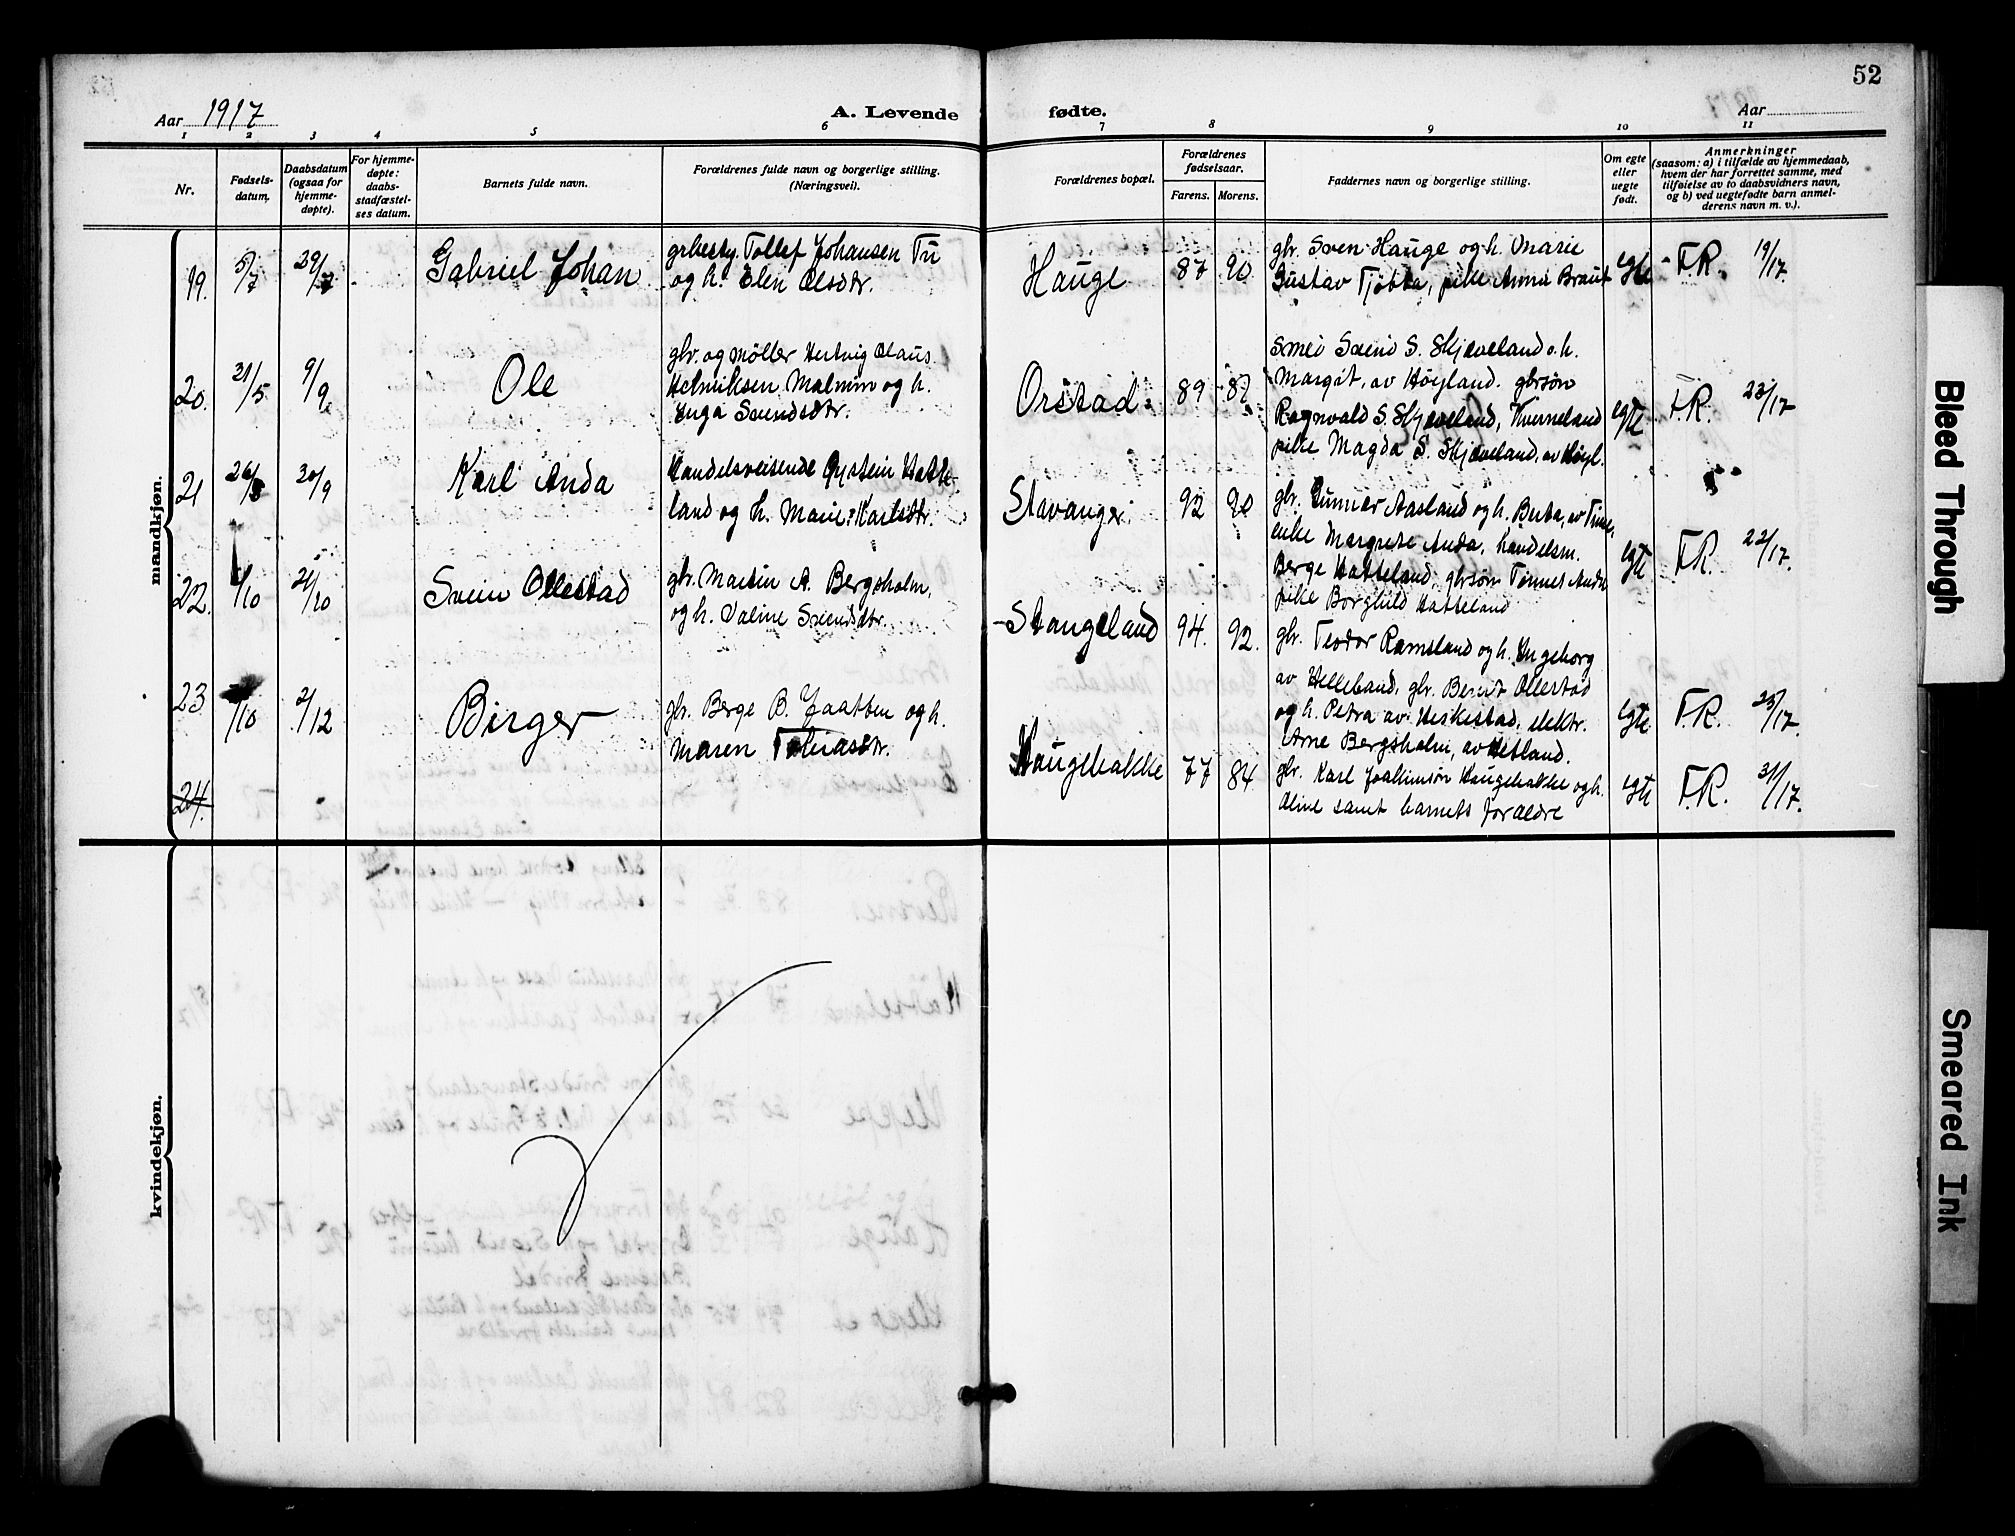 52
Aar 1917
A. Levende fødte.
Aar
1 2 3 4 5 6 7 8 9 10 11
Nr.
Fødsels-
datum.
Daabsdatum
(ogsaa for
hjemme-
døpte).
For hjemme-
døpte:
daabs-
stadfæstel-
ses datum.
Barnets fulde navn.
Forældrenes fulde navn og borgerlige stilling.
(Næringsvei).
Forældrenes bopæl.
Forældrenes
fødselsaar.
Farens. Morens.
Faddernes navn og borgerlige stilling.
Om egte
eller
uegte
født.
Anmerkninger
(saasom: a) i tilfælde av hjemmedaab,
hvem der har forrettet samme, med
tilføielse av to daabsvidners navn,
og b) ved uegtefødte barn anmel-
derens navn m. v.).
mandkjøn.
19. 5/7 29/7 Gabriel Johan
Tollef Johansen Tu
og h. Elen Olsdtr.
Hauge 87 90
gbr. Sven Hauge og h. Marie
Gustav Tjøtta, pike Anna Braut
egte F.R. 19/17.
20. 21/5 9/9 Ole
gbr. og møller Hertvig Claus
Henriksen Malmin og h.
Inga Svendsdtr.
Orstad. 89 87
Smed Svend S. Skjæveland o. h.
Margit, av Høyland. gbrsøn
Ragnvald S. Skjæveland, Kverneland
pike Magda S. Skjæveland, av Høyl.
egte F.R. 23/17
21 26/8 30/9 Karl Anda
Handelsreisende Øystein Hatte-
land og h. Marie Karlsdtr.
Stavanger 92 90
gbr. Gunnar Aasland og h. Berta, av Time,
enke Margrete Anda, handelsm.
Berge Hatteland, gbrsøn Tønnes Anda
pike Borghild Hatteland
egte F.R. 22/17.
22. /10 21/10 Svein Ollestad
gbr. Martin A. Bergsholm,
og h. Valine Svendsdtr.
Stangeland 94. 92.
gbr. Teodor Ramsland og h. Ingeborg
av Helleland, gbr. Berent Ollestad
og h. Petra av Heskestad, elektr.
Arne Bergsholm, av Hetland.
egte F.R. 25/17.
23 /10 2/12 Birger
gbr. Berge B. Jaatten og h.
Maren Tobiasdtr.
Haugebakke 77 84
gbr. Karl Joakimsøn Haugebakke og h.
Aline samt barnets forældre
egte F.R. 31/17.
24.
kvindekjøn.
Bleed Through
Smeared Ink